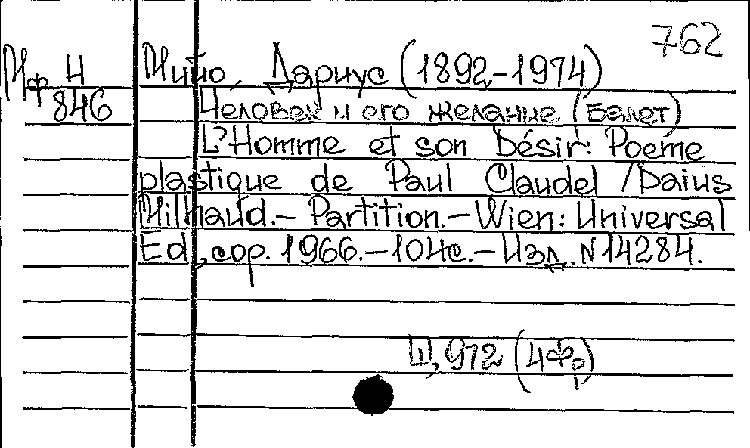 762
Мф Ч Мийо, Дариус (1892-1974)
846 Человек и его желание (Балет)
L'Homme et son Désir: Poeme
plastique de Paul Claudel / Daius
Milhaud.- Partition.- Wien: Universal
Ed., cop. 1966.- 104с.- Изд. N 14284.
972 (4ф.)